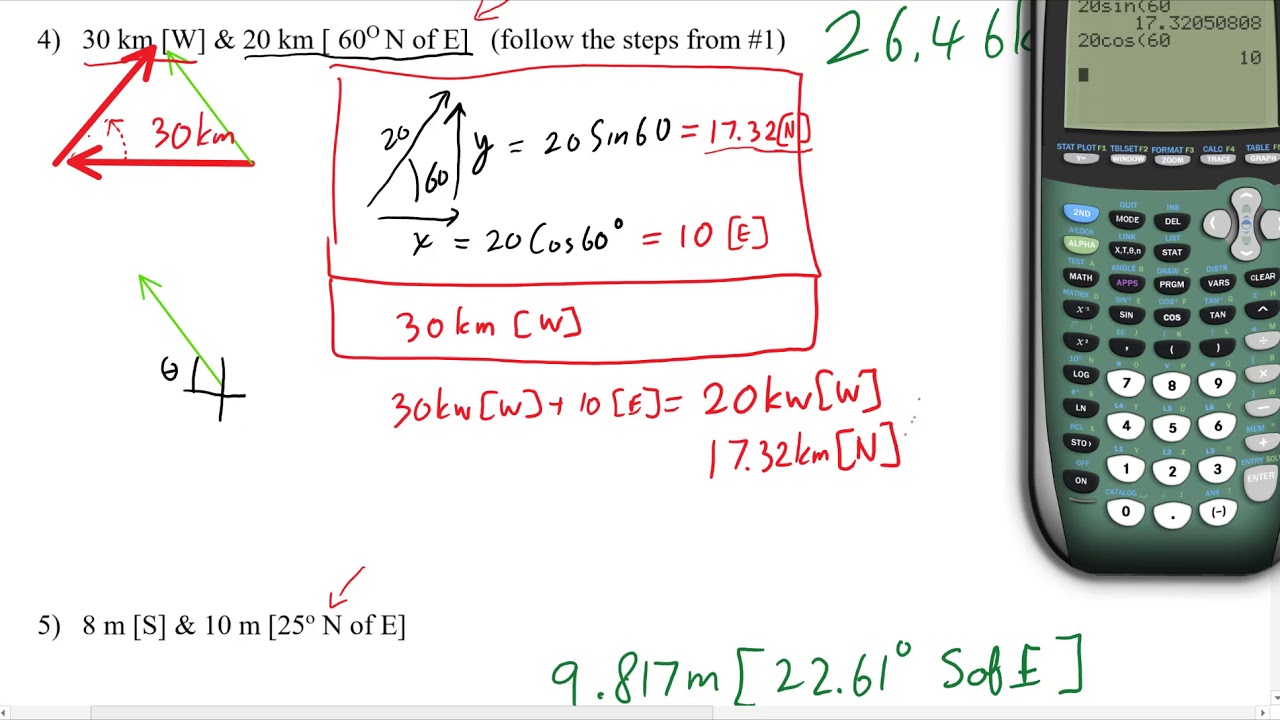 4) 30 km [W] & 20 km [ 60O N of E] (follow the steps from #1)
26.46k
20sin(60
17.32050808
20cos(60
10
30km
20
60
y = 20 Sin60 = 17.32[N]
x = 20 Cos60° = 10 [E]
30km [W]
θ
30kw[W]+ 10 [E]= 20kw[W]
17.32km[N]
5) 8 m [S] & 10 m [25o N of E]
9.817m [22.61° S of E]
STAT PLOT F1 TBLSET F2 FORMAT F3 CALC F4 TABLE F5
Y= WINDOW ZOOM TRACE GRAPH
QUIT INS
2ND MODE DEL
A-LOCK LINK LIST
ALPHA X,T,θ,n STAT
TEST A ANGLE B DRAW C DISTR
MATH APPS PRGM VARS CLEAR
MATRIX D SIN⁻¹ E COS⁻¹ F TAN⁻¹ G H
X⁻¹ SIN COS TAN ^
X² , ( ) ÷
LOG 7 8 9 ×
LN 4 5 6 −
RCL X L1 Y L2 Z L3
STO› 1 2 3 +
OFF CATALOG ANS ? ENTRY SOL
ON 0 . (-) ENTER